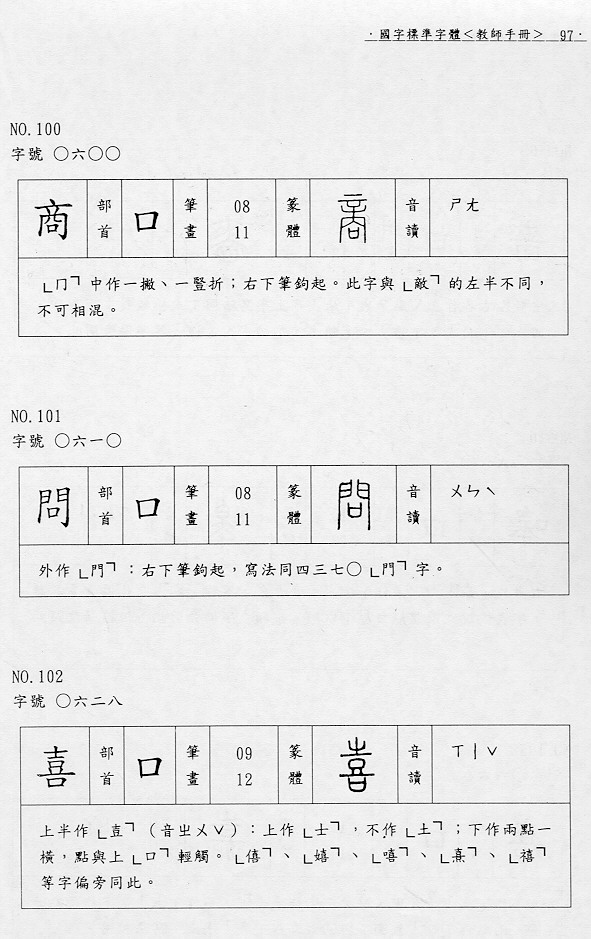 ·國字標準字體<教師手冊> 97·
NO.100
字號 〇六〇〇
商 部首 口 筆畫 08 11 篆體 音讀 ㄕㄤ
「冂」中作一撇、一豎折；右下筆鉤起。此字與「敵」的左半不同，
不可相混。
NO.101
字號 〇六一〇
問 部首 口 筆畫 08 11 篆體 音讀 ㄨㄣˋ
外作「門」：右下筆鉤起，寫法同四三七〇「門」字。
NO.102
字號 〇六二八
喜 部首 口 筆畫 09 12 篆體 音讀 ㄒㄧˇ
上半作「壴」（音ㄓㄨˇ）：上作「士」，不作「土」；下作兩點一
橫，點與上「口」輕觸。「僖」、「嬉」、「嘻」、「熹」、「禧」
等字偏旁同此。